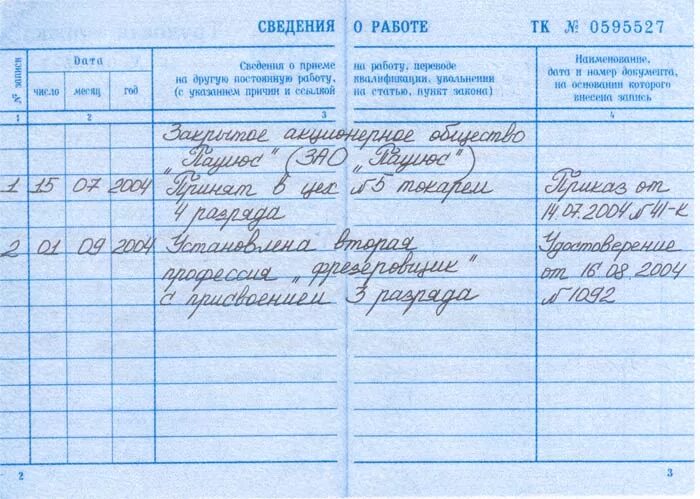 СВЕДЕНИЯ О РАБОТЕ ТК № 0595527
№ записи
Дата
число месяц год
Сведения о приеме на работу, переводе
на другую постоянную работу, квалификации, увольнении
(с указанием причин и ссылкой на статью, пункт закона)
Наименование,
дата и номер документа,
на основании которого
внесена запись
1 2 3 4
Закрытое акционерное общество
"Пацюс" (ЗАО "Пацюс")
1 15 07 2004 Принят в цех №5 токарем Приказ от
4 разряда 14.07.2004 №41-к
2 01 09 2004 Установлена вторая Удостоверение
профессия "фрезеровщик" от 16.08.2004
с присвоением 3 разряда №1092
2 3